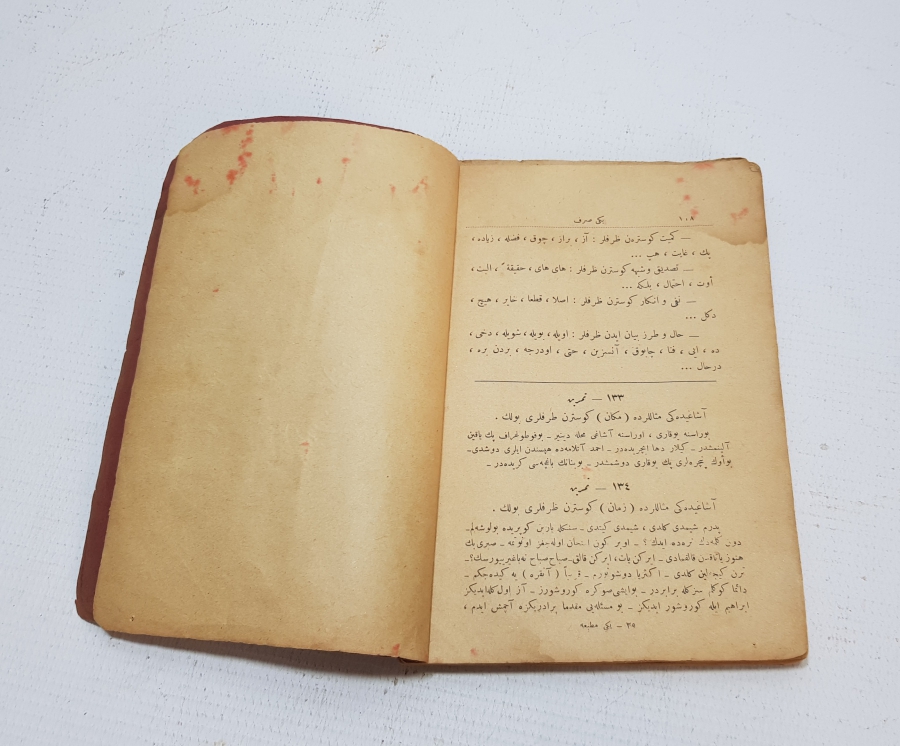 ١٠٨ یکی صرف
— کمیت کوسترەن ظرفلر : آز ، براز ، چوق ، فضله ، زیاده ،
پك ، غایت ، هپ ...
— تصدیق وشبهه کوسترن ظرفلر : های های ، حقیقةً ، البت ،
أوت ، احتمال ، بلکه ...
— نفی و انکار کوسترن ظرفلر : اصلا ، قطعا ، خایر ، هیچ ،
دکل ...
— حال و طرز بیان ایدن ظرفلر : اویله ، بویله ، شویله ، دخی ،
ده ، ایی ، فنا ، چابوق ، آنسزین ، حتی ، اودرجه ، بردن بره ،
درحال ...
١٣٣ — تمرین
آشاغیده‌کی مثاللرده ( مکان ) کوسترن ظرفلری بولك .
بوراسنه یوقاری ، اوراسنه آشاغی محله دینیر ـ بوفوطوغراف پك یاقین
آلینمشدر ـ کیلار دها ایچریده‌در ـ احمد آتلامه‌ده هپسندن ایلری دوشدی ـ
بوأوك پنجره‌لری پك یوقاری دوشمشدر ـ بوبنانك باغچه‌سی کریده‌در ـ
١٣٤ — تمرین
آشاغیده‌کی مثاللرده ( زمان ) کوسترن ظرفلری بولك .
پدرم شیمدی کلدی ، شیمدی کیتدی ـ سنکله یارین کوپریده بولوشه‌لم ـ
دون کیجه نره‌ده ایدك ؟ ـ اوبر کون امتحان اوله‌جغز ـ صبری بك
هنوز یاتاقدن قالقمادی ـ ایرکن یات، ایرکن قالق ـ صباح صباح نه باغیرییورسك؟ ـ
ترن کیجه‌لین کلدی ـ اکثریا دوشونورم ـ قریباً ( آنقره ) یه کیده‌جکم ـ
دائما کوکلم سزکله برابردر ـ بوایشی صوکره کوروشورز ـ آز اول کله‌ایدیکز
ابراهیم ایله کوروشور ایدیکز ـ بو مسئله‌یی مقدما برادریکزه آچمش ایدم ،
٣٩ — یکی مطبعه